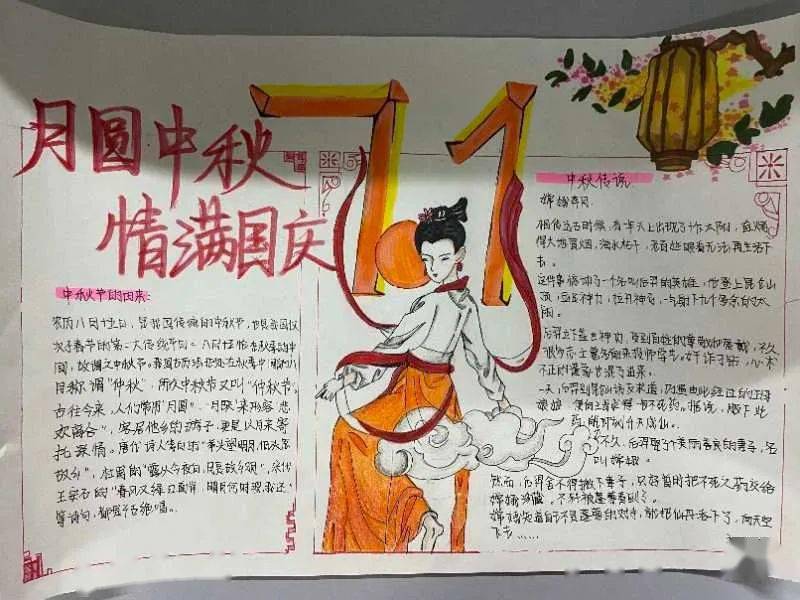 月圆中秋
情满国庆
71
中秋节的由来:
农历八月十五日,是我国传统的中秋节,也是我国仅
次于春节的第二大传统节日。八月恰恰在秋季的中
间,故谓之中秋节。我国古历法把处在秋季中间的八
月称谓"仲秋",所以中秋节又叫"仲秋节"
古往今来,人们常用"月圆"、"月缺"来形容"悲
欢离合",客居他乡的游子,更是以月来寄
托深情。唐代诗人李白的"举头望明月,低头思
故乡",杜甫的"露从今夜白,月是故乡明",宋代
王安石的"春风又绿江南岸,明月何时照我还"
等诗句,都是千古绝唱。
中秋传说
嫦娥奔月
相传远古时候,有年天上出现了十个太阳,直烤
得大地冒烟,海水枯干,老百姓眼看无法再生活下
去。
这件事惊动了一个名叫后羿的英雄,他登上昆仑山
顶,运足神力,拉开神弓,一气射下九个多余的太
阳。
后羿立下盖世神功,受到百姓的尊敬和爱戴,不久
心术
不正的蓬蒙也混了进来。
一天,后羿到昆仑山访友求道,巧遇由此经过的王母
娘娘,便向王母求得一包不死药。据说,服下此
药,能即刻升天成仙。
不久,后羿娶了个美丽善良的妻子,名
叫嫦娥。
然而,后羿舍不得撇下妻子,只好暂时把不死药交给
嫦娥珍藏。不料被蓬蒙看到了。